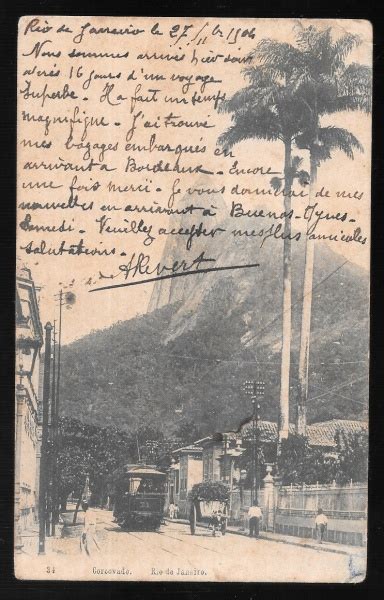 Rio de Janeiro le 27/11bre 1904
Nous sommes arrivés hier soir
après 16 jours d'un voyage
superbe - Il a fait un temps
magnifique - J'ai trouvé
mes bagages embarqués en
arrivant à Bordeaux - Encore
une fois merci - Je vous donnerai de mes
nouvelles en arrivant à Buenos-Ayres
Samedi - Veuillez accepter mes plus amicales
salutations -
31 Corcovado. Rio de Janeiro.